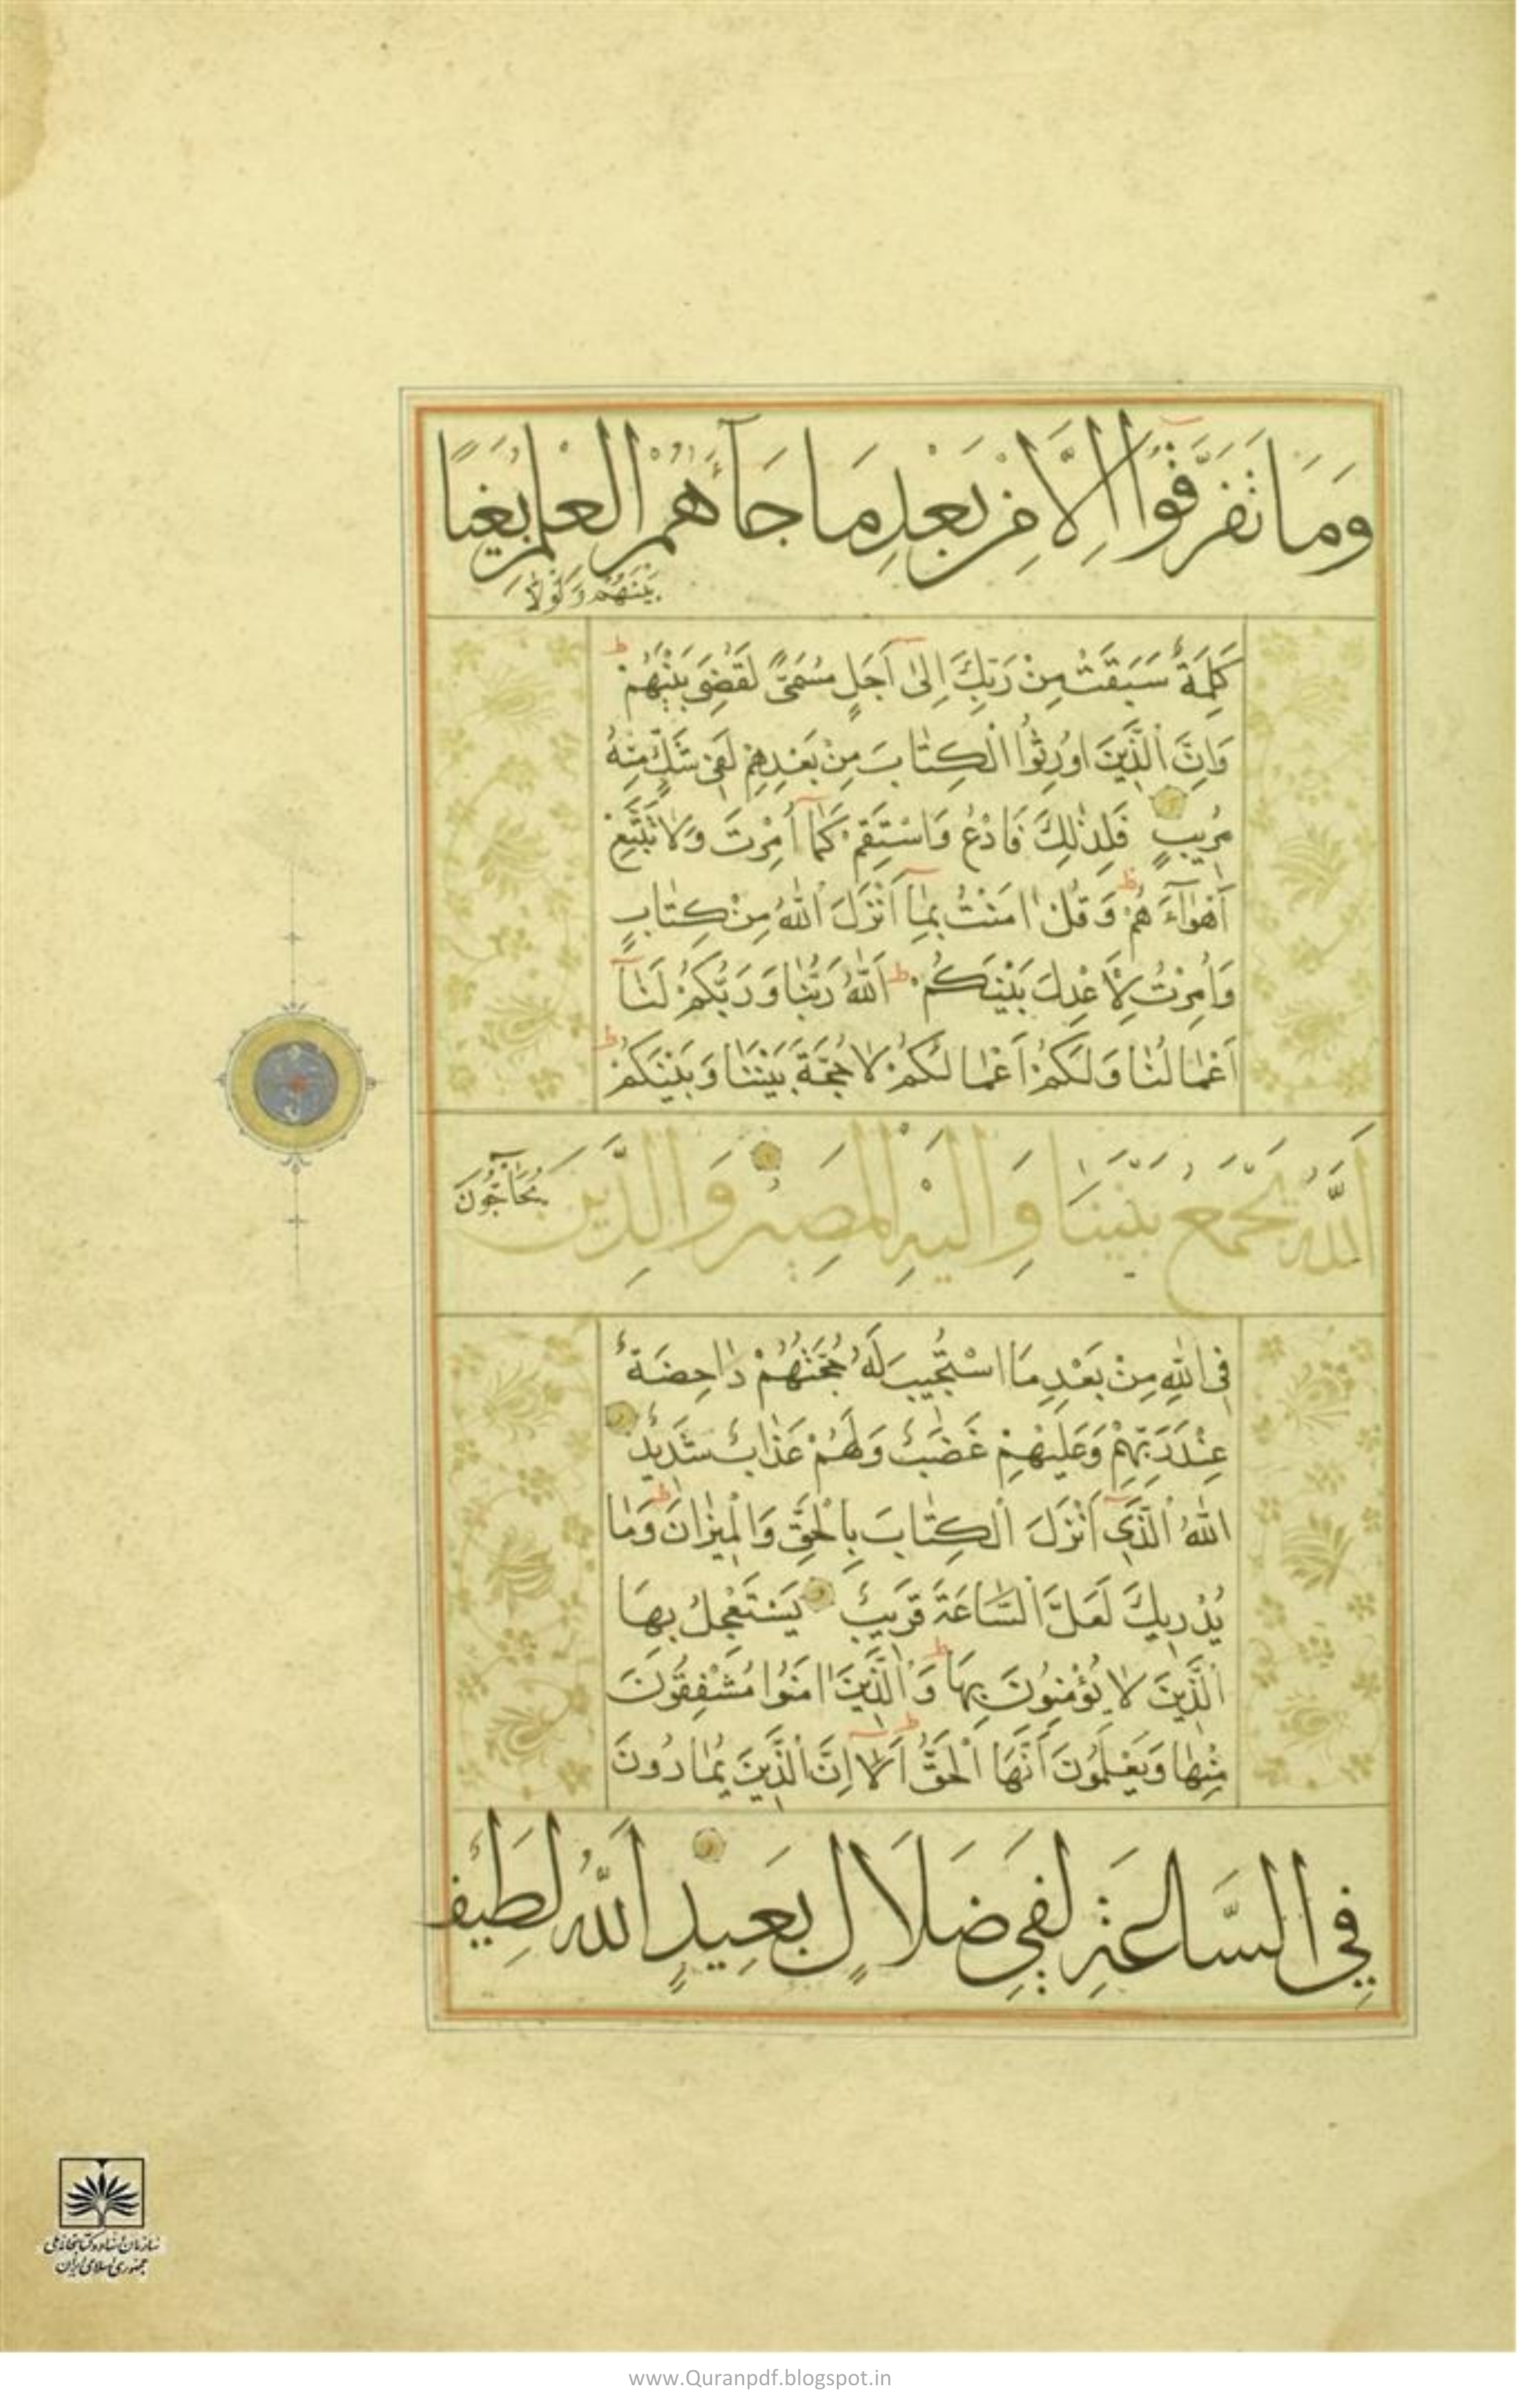 وَمَا تَفَرَّقُوا اِلَّا مِنْ بَعْدِ مَا جَآءَهُمُ الْعِلْمُ بَغْيًا
بَيْنَهُمْ وَلَوْلَا
كَلِمَةٌ سَبَقَتْ مِنْ رَبِّكَ اِلٰى اَجَلٍ مُسَمًّى لَقُضِىَ بَيْنَهُمْ ط
وَاِنَّ الَّذِينَ اُورِثُوا الْكِتٰابَ مِنْ بَعْدِهِمْ لَفِى شَكٍّ مِنْهُ
مُرِيبٍ فَلِذٰلِكَ فَادْعُ وَاسْتَقِمْ كَمٰا اُمِرْتَ وَلٰا تَتَّبِعْ
اَهْوٰآءَ هُمْ ط وَقُلْ اٰمَنْتُ بِمٰا اَنْزَلَ اللّٰهُ مِنْ كِتٰابٍ
وَاُمِرْتُ لِاَعْدِلَ بَيْنَكُمْ ط اَللّٰهُ رَبُّنٰا وَرَبُّكُمْ لَنٰا
اَعْمٰالُنٰا وَلَكُمْ اَعْمٰالُكُمْ لٰا حُجَّةَ بَيْنَنٰا وَبَيْنَكُمْ ط
اَللّٰهُ يَجْمَعُ بَيْنَنَا وَاِلَيْهِ الْمَصِيرُ وَالَّذِينَ
يُحَآجُّونَ
فِى اللّٰهِ مِنْ بَعْدِ مَا اسْتُجِيبَ لَهُ حُجَّتُهُمْ دٰاحِضَةٌ
عِنْدَ رَبِّهِمْ وَعَلَيْهِمْ غَضَبٌ وَلَهُمْ عَذٰابٌ شَدِيدٌ
اَللّٰهُ الَّذِى اَنْزَلَ الْكِتٰابَ بِالْحَقِّ وَالْمِيزٰانَ ط وَمٰا
يُدْرِيكَ لَعَلَّ السَّاعَةَ قَرِيبٌ يَسْتَعْجِلُ بِهَا
الَّذِينَ لٰا يُؤْمِنُونَ بِهَا ط وَالَّذِينَ اٰمَنُوا مُشْفِقُونَ
مِنْهٰا وَيَعْلَمُونَ اَنَّهَا الْحَقُّ ط اَلٰا اِنَّ الَّذِينَ يُمٰارُونَ
فِى السَّاعَةِ لَفِى ضَلَالٍ بَعِيدٍ اَللّٰهُ لَطِيفٌ
سازمان اسناد و کتابخانه ملی
جمهوری اسلامی ایران
www.Quranpdf.blogspot.in